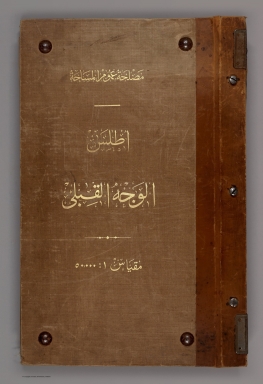 مصلحة عموم المساحة
اطلس
الوجه القبلى
مقياس ١ : ٥٠٠٠٠